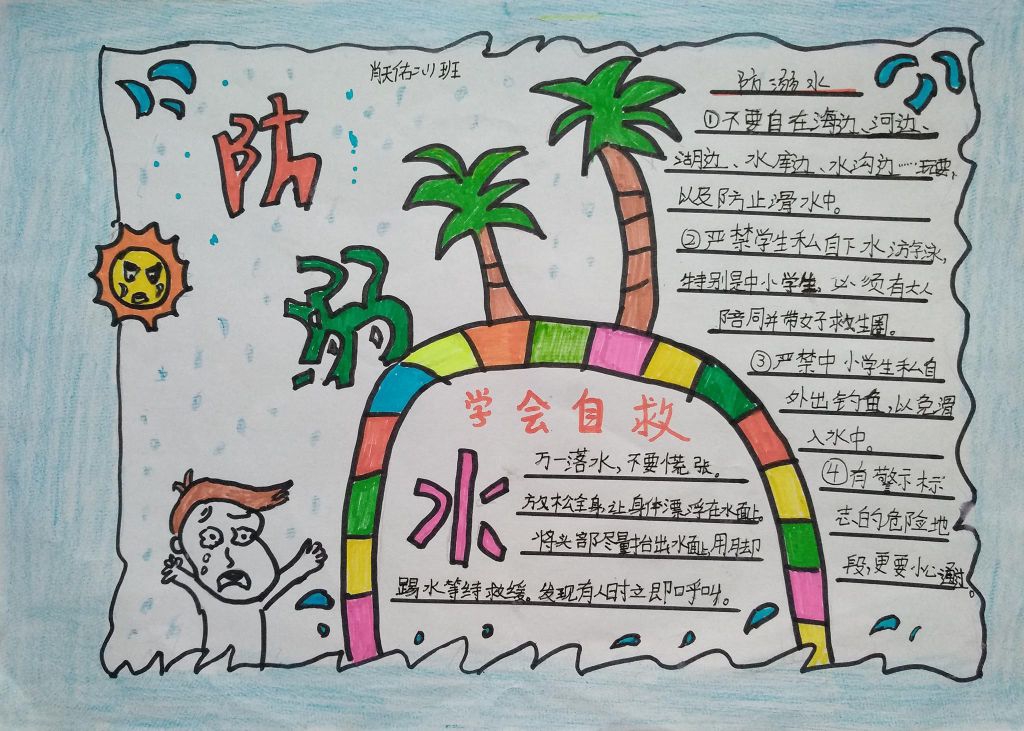 肖天佑二(1)班
防
溺
水
防溺水
①不要自在海边、河边、
湖边、水库边、水沟边……玩耍、
以及防止滑水中。
②严禁学生私自下水游泳,
特别是中小学生,必须有大人
陪同并带好救生圈。
③严禁中小学生私自
外出钓鱼,以免滑
入水中。
④有警示标
志的危险地
段,更要小心通过。
学会自救
万一落水,不要慌张。
放松全身让身体漂浮在水面上。
将头部尽量抬出水面上用脚
踢水等待救援。发现有人时立即呼叫。